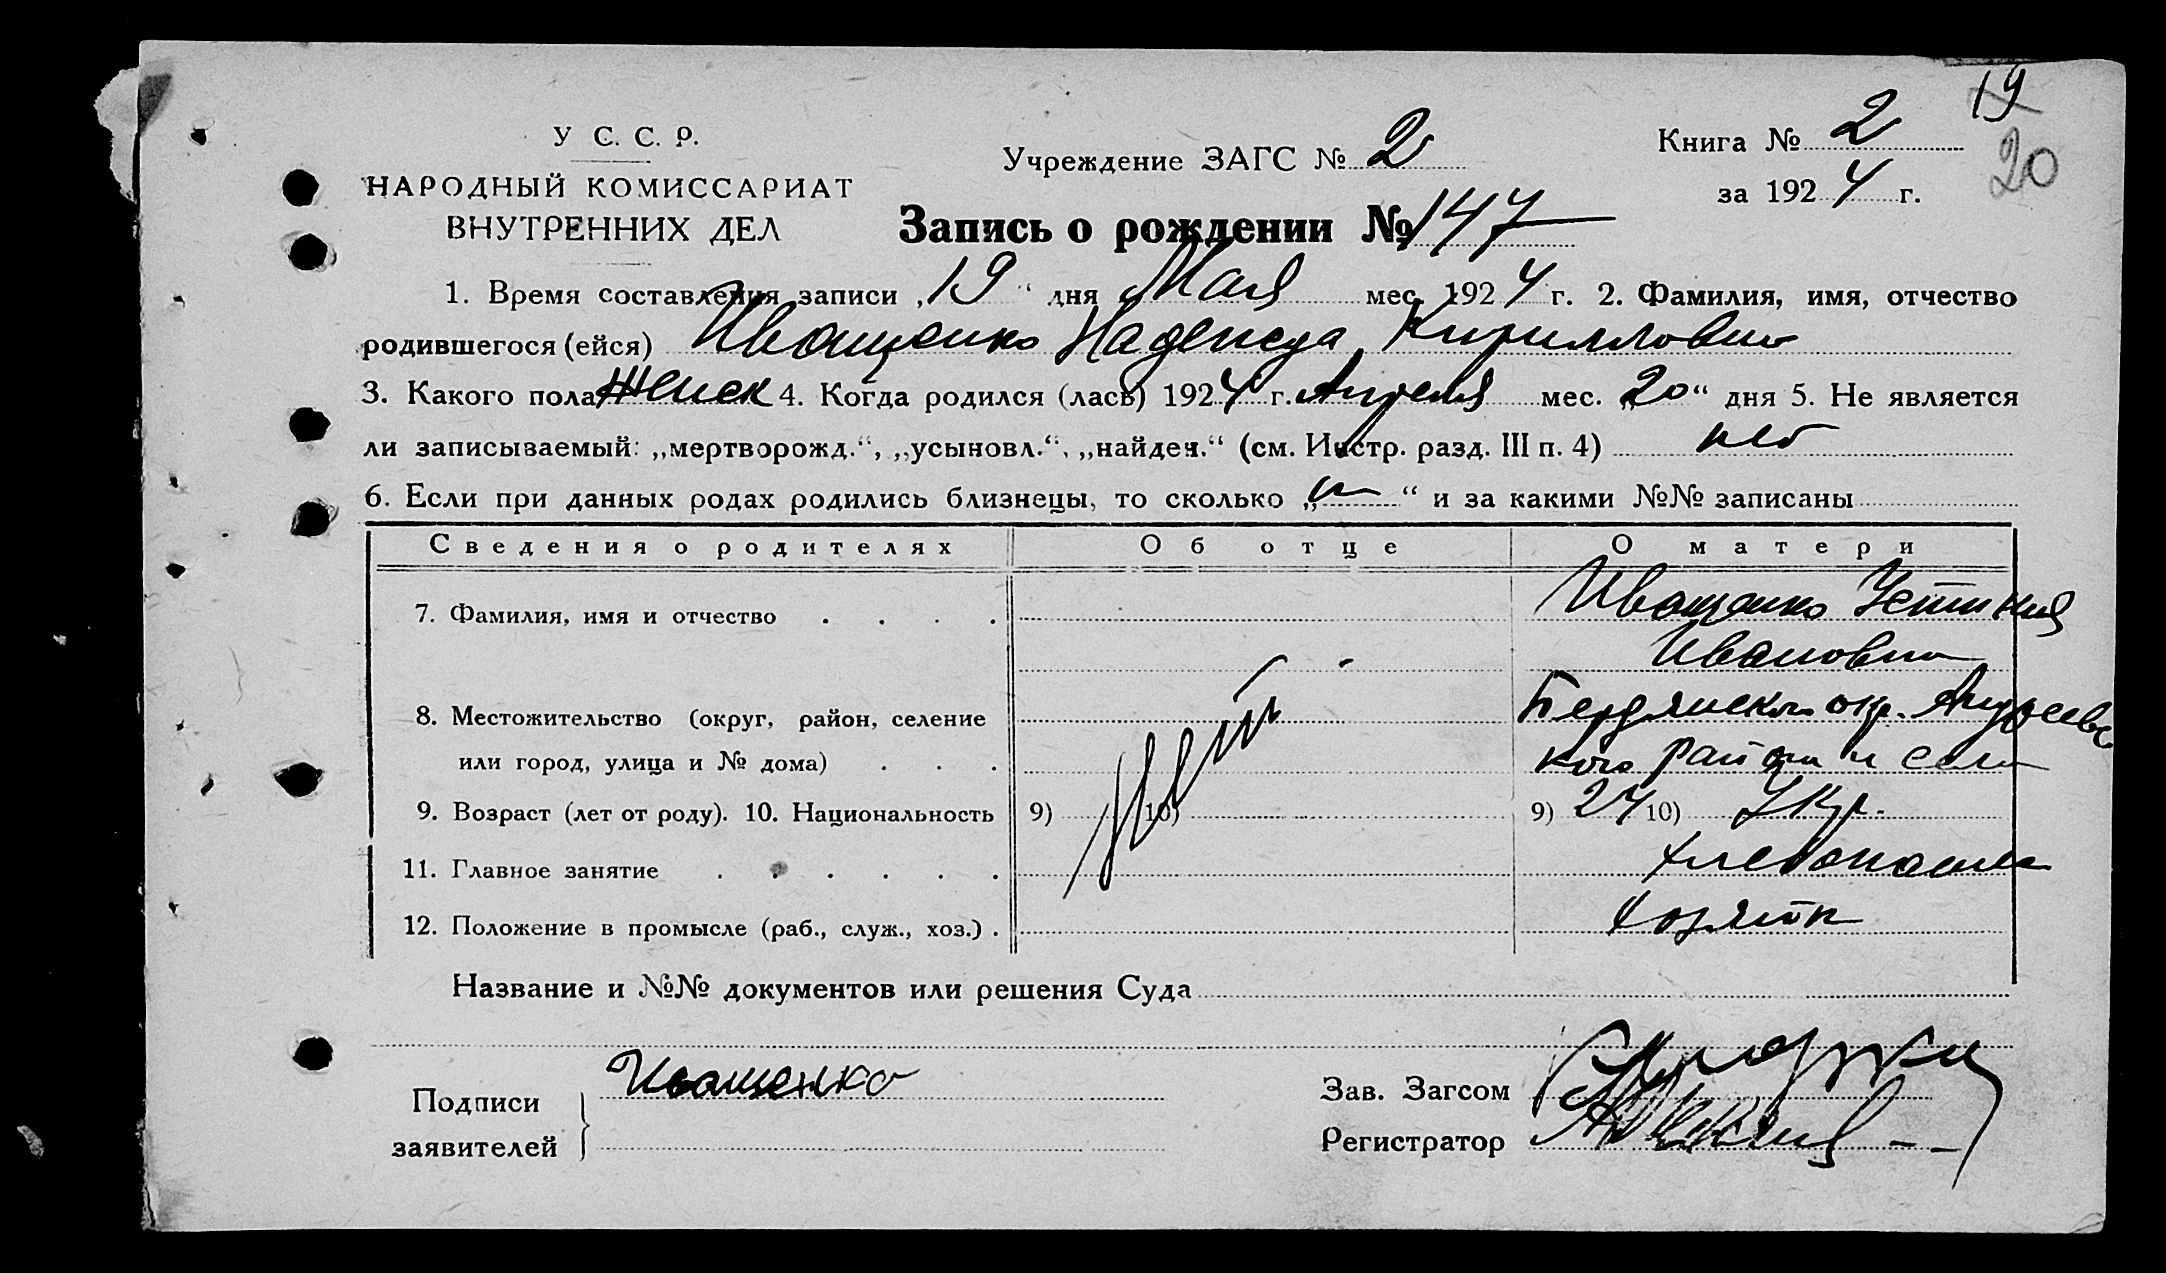 19
20
У С. С. Р.
НАРОДНЫЙ КОМИССАРИАТ
ВНУТРЕННИХ ДЕЛ
Учреждение ЗАГС № 2
Книга № 2
за 1924 г.
Запись о рождении № 147
1. Время составления записи „19“ дня Мая мес. 1924 г. 2. Фамилия, имя, отчество
родившегося (ейся) Иващенко Надежда Кирилловна
3. Какого пола женск 4. Когда родился (лась) 1924 г. Апреля мес. „20“ дня 5. Не является
ли записываемый: „мертворожд.“, „усыновл.“, „найден.“ (см. Инстр. разд. III п. 4) нет
6. Если при данных родах родились близнецы, то сколько „ “ и за какими №№ записаны
Сведения о родителях Об отце О матери
7. Фамилия, имя и отчество . . . . Иващенко Устиния
Ивановна
8. Местожительство (округ, район, селение Бердянского окр. Андреевс
или город, улица и № дома) . . . кого района и села
9. Возраст (лет от роду). 10. Национальность 9) 10) 9) 24 10) Укр.
нет
11. Главное занятие . . . . . . хлебопашес
12. Положение в промысле (раб., служ., хоз.) . хозяйк
Название и №№ документов или решения Суда
Подписи
заявителей
Иващенко
Зав. Загсом
Регистратор